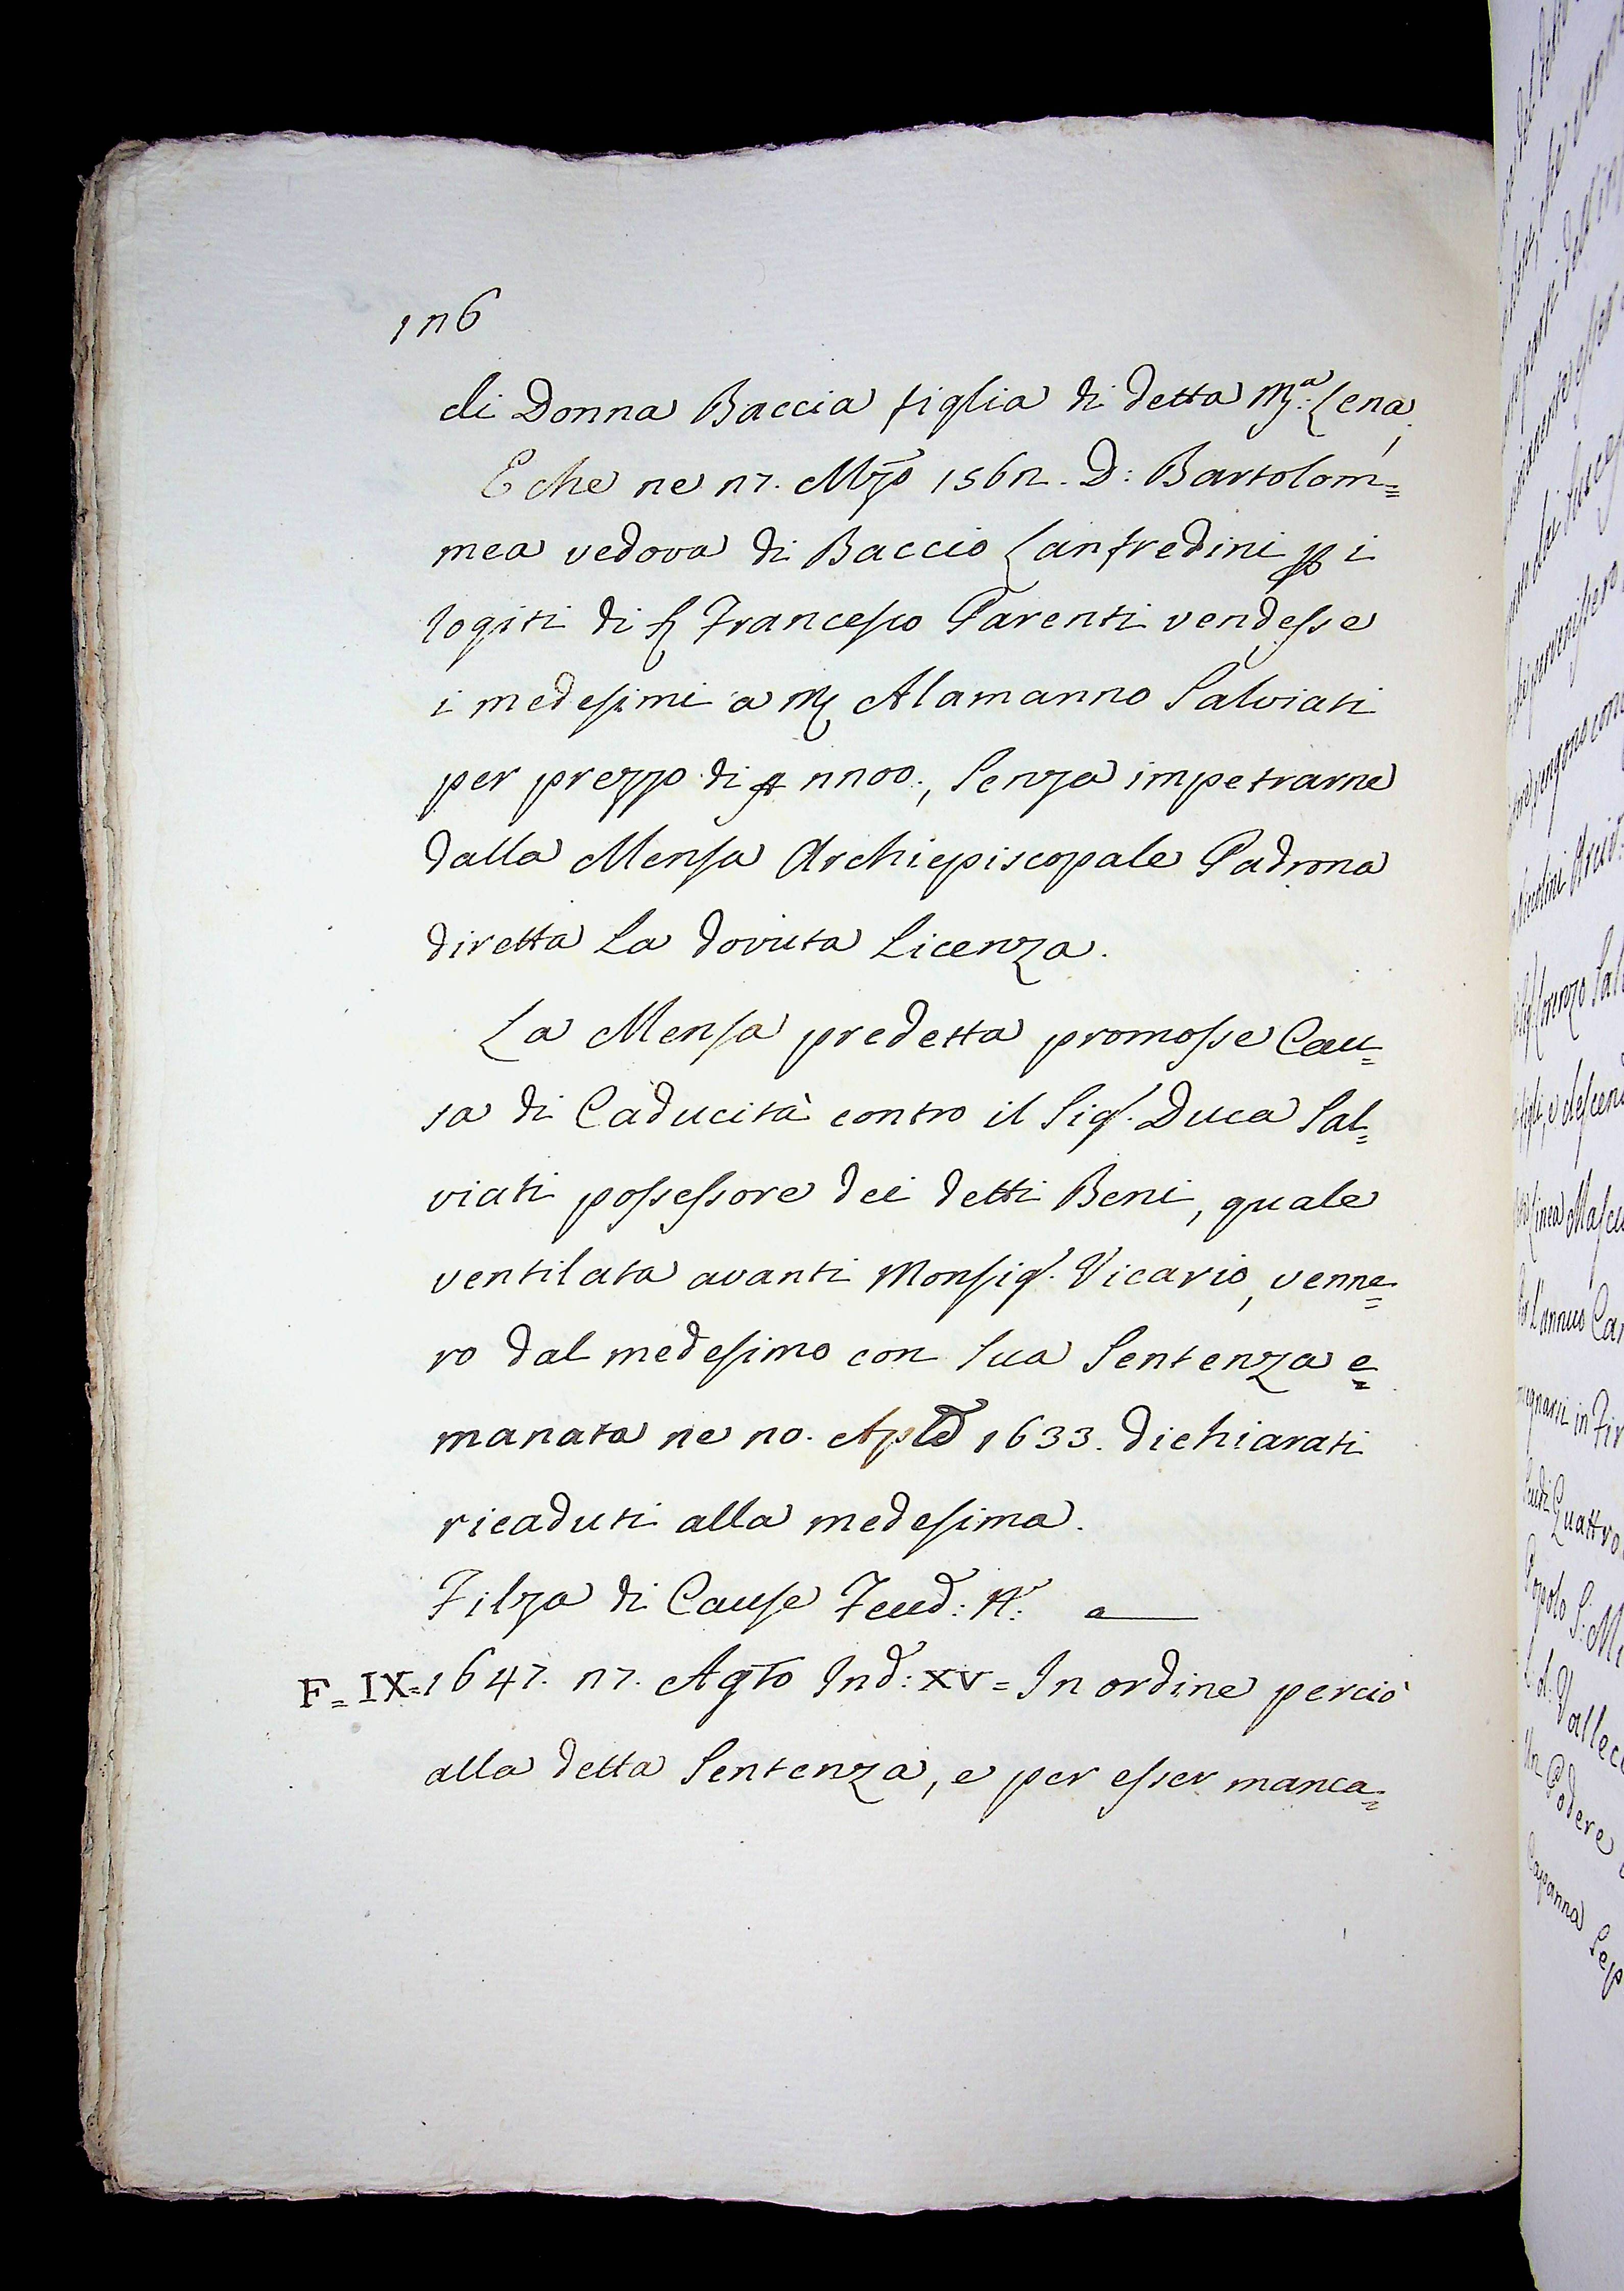 126
di Donna Baccia figlia di detta M.ª Lena;
E che ne 27. Mzo 1562. D: Bartolom=
mea vedova di Baccio Lanfredini p i
rogiti di S. Francesco Parenti vendesse
i medesimi a M. Alamanno Salviati
per prezzo di 2200., senza impetrarne
dalla Mensa Archiepiscopale Padrona
diretta la dovuta Licenza.
La Mensa predetta promosse Cau=
sa di Caducità contro il Sig. Duca Sal=
viati possessore dei detti Beni, quale
ventilata avanti Monsig. Vicario, venne=
ro dal medesimo con sua Sentenza e=
manata ne 20. Aple 1633. dichiarati
ricaduti alla medesima.
Filza di Cause Feud: N:
F=IX=1647. 27. Agto Ind: XV= In ordine perciò
alla detta Sentenza, e per esser manca=